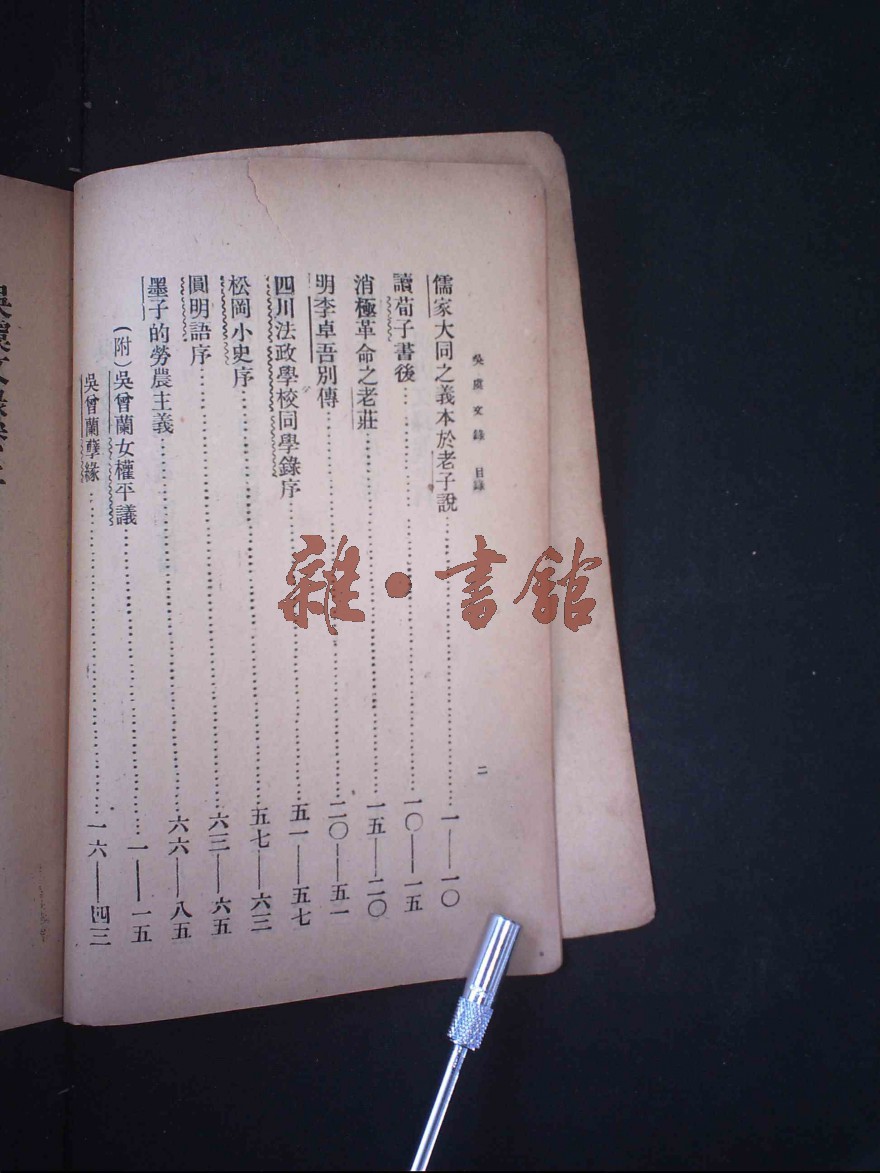 吳虞文錄 目錄 二
儒家大同之義本於老子說⋯⋯一——一〇
讀荀子書後⋯⋯一〇——一五
消極革命之老莊⋯⋯一五——二〇
明李卓吾別傳⋯⋯二〇——五一
四川法政學校同學錄序⋯⋯五一——五七
松岡小史序⋯⋯五七——六三
圓明語序⋯⋯六三——六五
墨子的勞農主義⋯⋯六六——八五
(附)吳曾蘭女權平議⋯⋯一——一五
吳曾蘭孽緣⋯⋯一六——四三
雜·書館